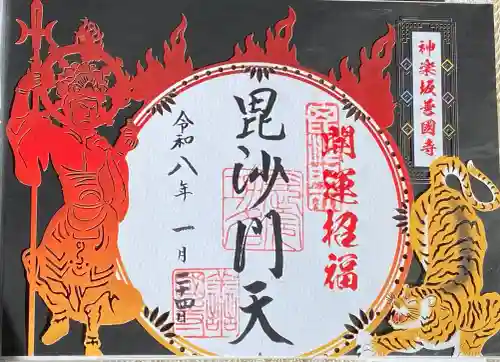 神楽坂善國寺
開運招福
毘沙門天
令和八年 一月
二十四日